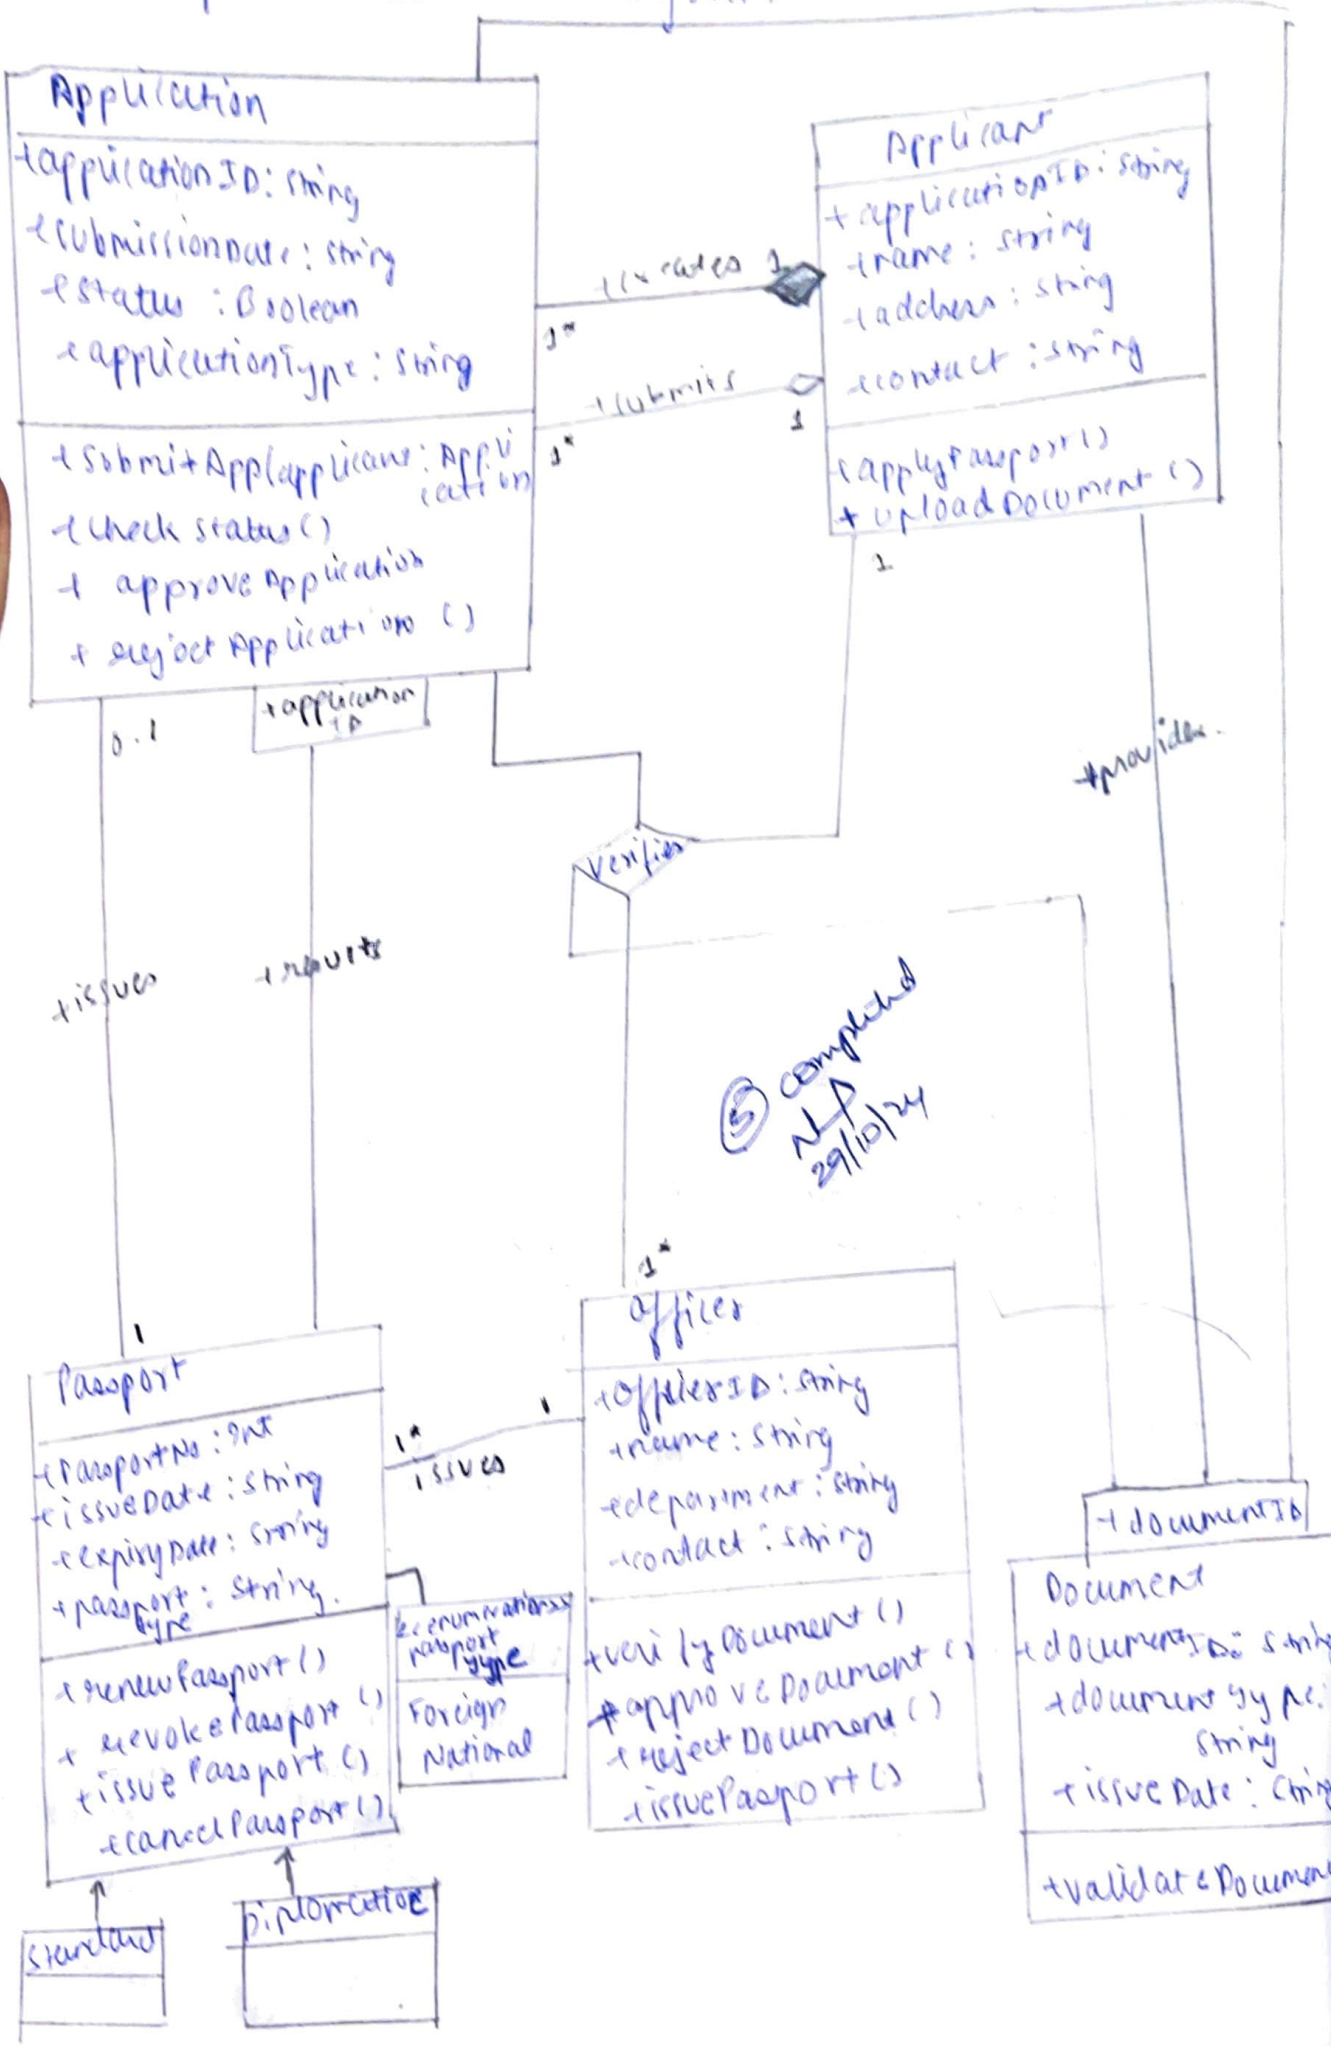 Application
+applicationID: String
+submissionDate: String
+status : Boolean
+applicationType: String
+submitApp(applicant: Appli
cation
+check status()
+ approve Application
+ reject Application ()
+application
ID
Applicant
+ applicationID: String
+name: String
+address: String
+contact: String
+applyPassport()
+ uploadDocument ()
+creates
1
1*
+submits
1
1*
1
0..1
Verifies
+provides
+issues
+results
5 completed
29/10/24
1*
1
Passport
+PassportNo: Int
+issueDate: String
+expiryDate: String
+passport : String
type
+renewPassport()
+ revokePassport ()
+issue Passport ()
+cancelPassport()
1*
1
issues
Officer
+OfficerID: String
+name: String
+department: String
+contact: String
+verifyDocument()
+approveDocument ()
+rejectDocument()
+issuePassport()
<<enumerations>>
passport
type
Foreign
National
+documentID
Document
+documentID: String
+document type:
String
+issueDate: String
+validateDocument
Standard
Diplomatice